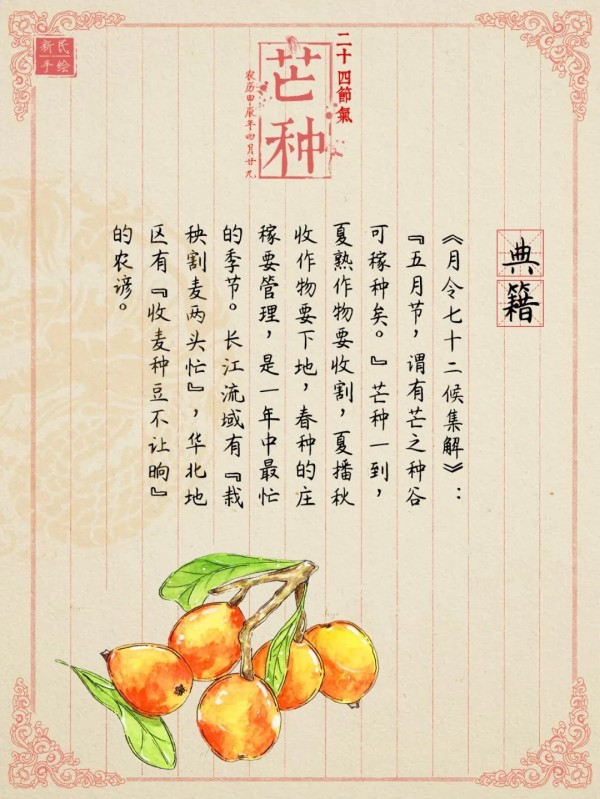 新民
手绘
二十四節氣
芒种
农历甲辰年四月廿九
典籍
《月令七十二候集解》：
『五月节，谓有芒之种谷
可稼种矣。』芒种一到，
夏熟作物要收割，夏播秋
收作物要下地，春种的庄
稼要管理，是一年中最忙
的季节。长江流域有『栽
秧割麦两头忙』，华北地
区有『收麦种豆不让晌』
的农谚。